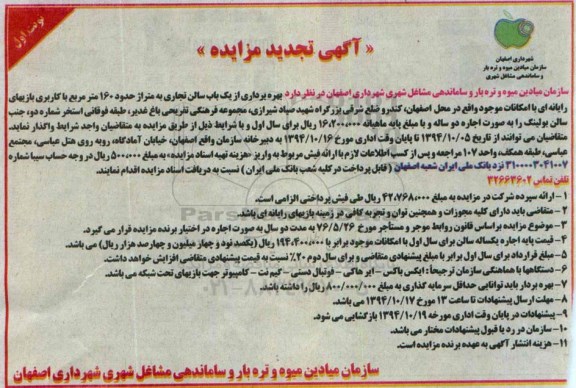 نوبت اول
« آگهی تجدید مزایده »
شهرداری اصفهان
سازمان میادین میوه و تره بار
و ساماندهی مشاغل شهری
سازمان میادین میوه و تره بار و ساماندهی مشاغل شهری شهرداری اصفهان در نظر دارد بهره برداری از یک باب سالن تجاری به متراژ حدود ۱۶۰ متر مربع با کاربری بازیهای
رایانه ای با امکانات موجود واقع در محل اصفهان، کندرو ضلع شرقی بزرگراه شهید صیاد شیرازی، مجموعه فرهنگی تفریحی باغ غدیر، طبقه فوقانی استخر شماره دو، جنب
سالن بولینگ را به صورت اجاره دو ساله و با مبلغ پایه ماهیانه ۱۶،۲۰۰،۰۰۰ ریال برای سال اول و با شرایط ذیل از طریق مزایده به متقاضیان واجد شرایط واگذار نماید.
متقاضیان می توانند از تاریخ ۱۳۹۴/۱۰/۰۵ تا پایان وقت اداری مورخ ۱۳۹۴/۱۰/۱۶ به دبیرخانه سازمان واقع اصفهان، خیابان آمادگاه، روبه روی هتل عباسی، مجتمع
عباسی، طبقه همکف، واحد ۱۰۷ مراجعه و پس از کسب اطلاعات لازم با ارائه فیش مربوط به واریز «هزینه تهیه اسناد مزایده» به مبلغ ۵۰۰،۰۰۰ ریال در وجه حساب سیبا شماره
۳۱۰۰۰۰۳۰۴۱۰۰۷ نزد بانک ملی ایران شعبه اصفهان ( قابل پرداخت در کلیه شعب بانک ملی ایران ) نسبت به دریافت اسناد مزایده اقدام نمایند.
تلفن تماس ۳۲۶۶۳۶۰۲
۱- ارائه سپرده شرکت در مزایده به مبلغ ۴۲،۷۶۸،۰۰۰ ریال طی فیش پرداختی الزامی است.
۲- متقاضی باید دارای کلیه مجوزات و همچنین توان و تجربه کافی در زمینه بازیهای رایانه ای باشد.
۳- موضوع مزایده براساس قانون روابط موجر و مستأجر مورخ ۷۶/۵/۲۶ به مدت دو سال به صورت اجاره در اختیار برنده مزایده قرار می گیرد.
۴- قیمت پایه اجاره یکساله سالن برای سال اول با امکانات موجود برابر با ۱۹۴،۴۰۰،۰۰۰ ریال (یکصد نود و چهار میلیون و چهارصد هزار ریال) می باشد.
۵- مبلغ قرارداد برای سال اول برابر با مبلغ پیشنهادی متقاضی و برای سال دوم ۲۰٪ نسبت به قیمت پیشنهادی متقاضی افزایش خواهد داشت.
۶- دستگاهها با هماهنگی سازمان ترجیحا: ایکس باکس – ایر هاکی – فوتبال دستی – گیم نت – کامپیوتر جهت بازیهای تحت شبکه می باشد.
۷- بهره بردار باید توانایی حداقل سرمایه گذاری به مبلغ ۸۰۰/۰۰۰/۰۰۰ ریال را داشته باشد.
۸- مهلت ارسال پیشنهادات تا ساعت ۱۳ مورخ ۱۳۹۴/۱۰/۱۷ می باشد.
۹- پیشنهادات در پایان وقت اداری مورخه ۱۳۹۴/۱۰/۱۹ بازگشایی می شود.
۱۰- سازمان در رد یا قبول پیشنهادات مختار می باشد.
۱۱- هزینه انتشار آگهی به عهده برنده مزایده است.
سازمان میادین میوه و تره بار و ساماندهی مشاغل شهری شهرداری اصفهان